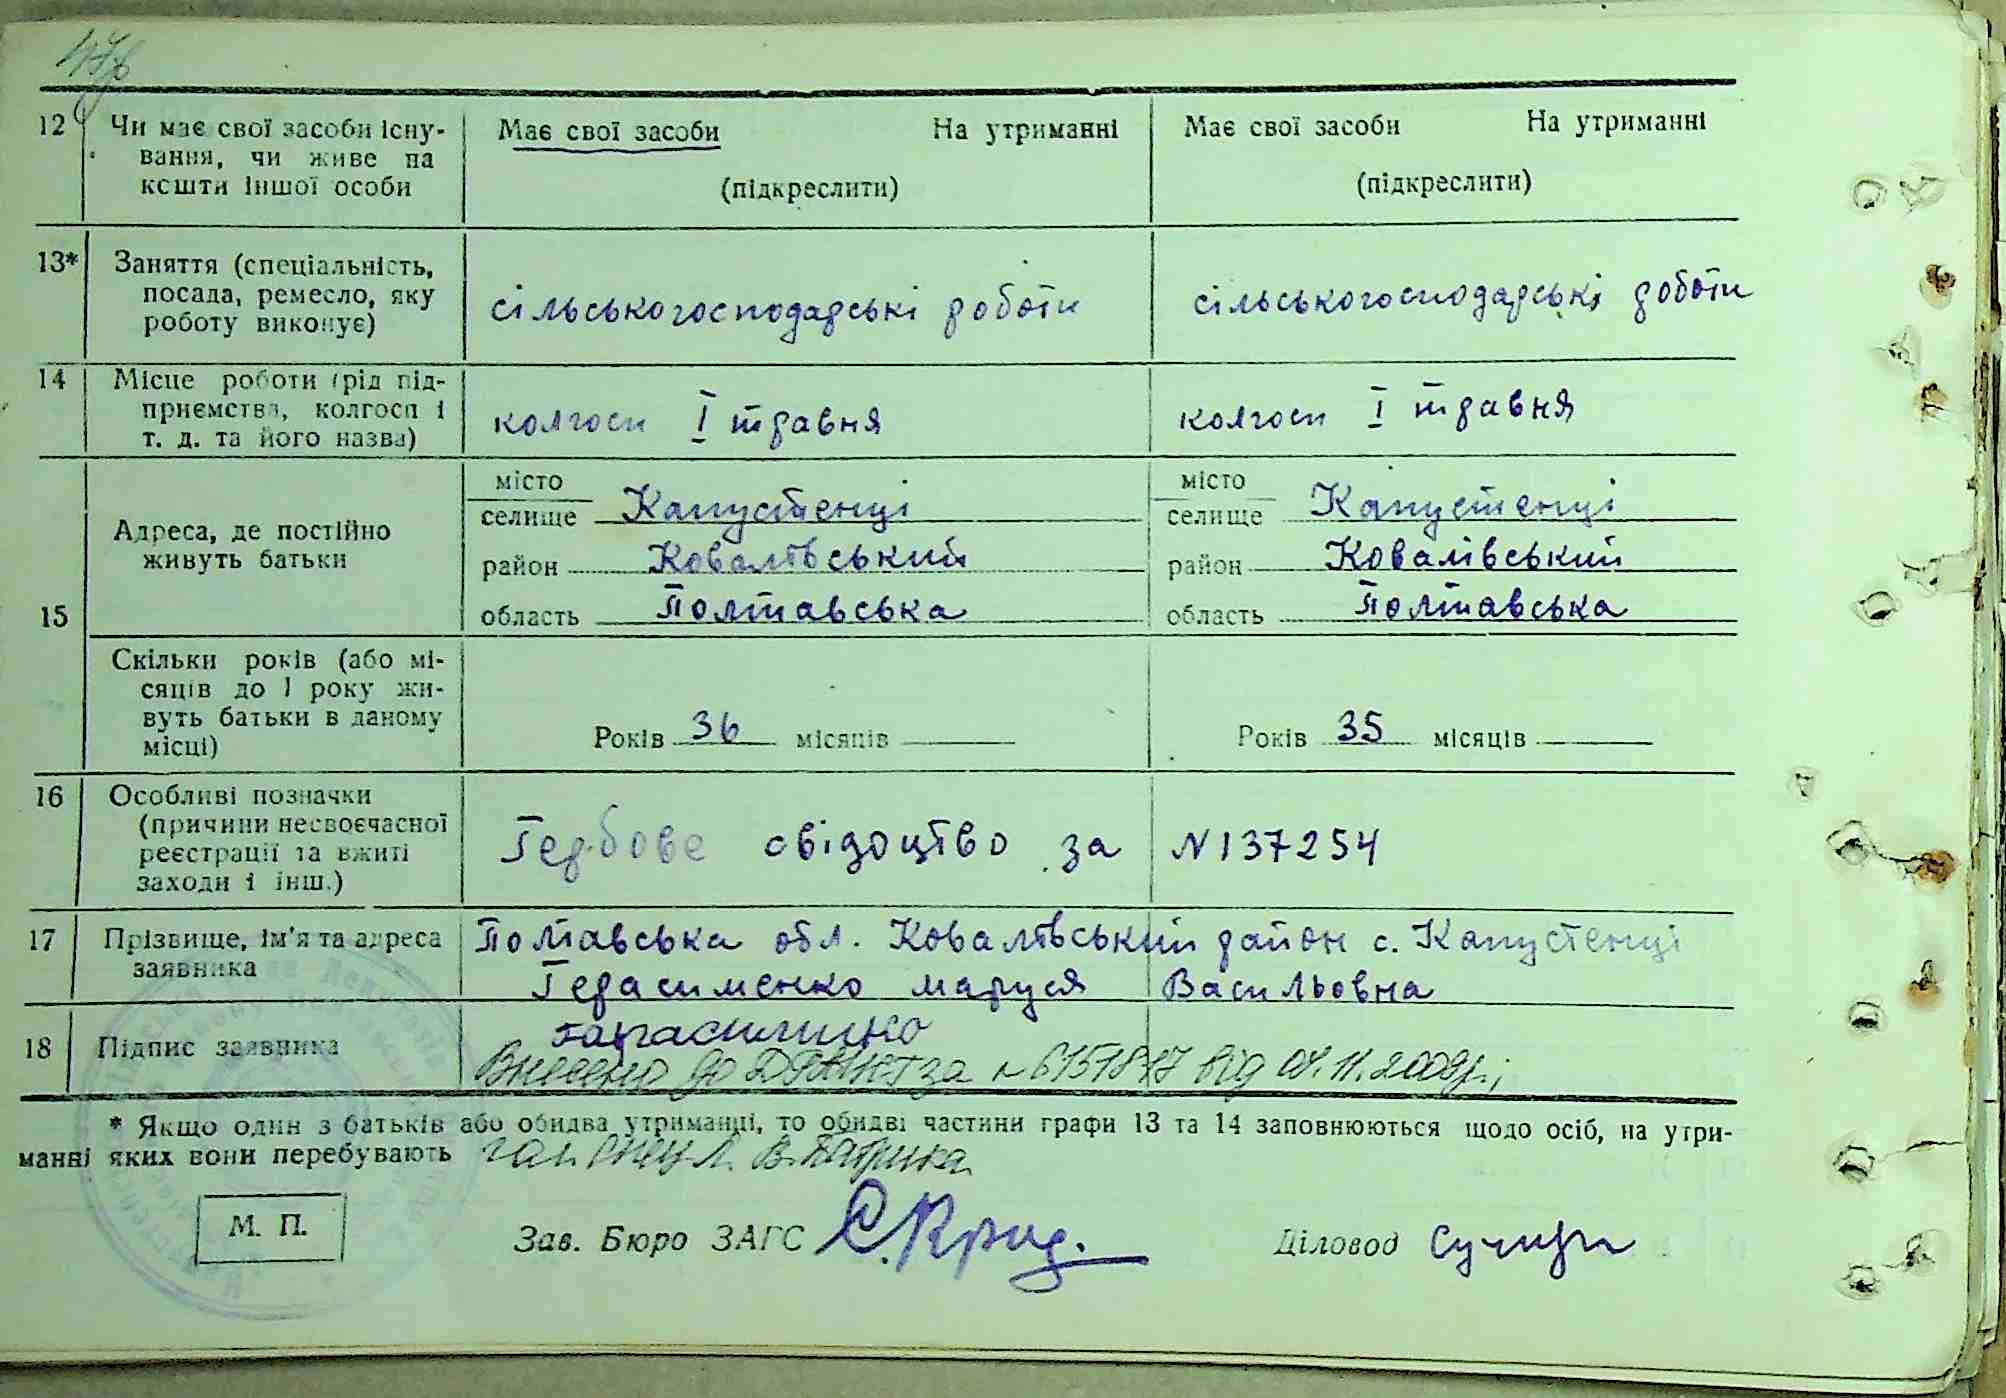 12 Чи має свої засоби існу-
вання, чи живе на
кошти іншої особи
Має свої засоби На утриманні
(підкреслити)
Має свої засоби На утриманні
(підкреслити)
13* Заняття (спеціальність,
посада, ремесло, яку
роботу виконує)
сільськогосподарські роботи
сільськогосподарські роботи
14 Місце роботи (рід під-
приємства, колгосп і
т. д. та його назва)
колгосп І травня
колгосп І травня
15 Адреса, де постійно
живуть батьки
місто
селище Капустенці
район Ковалівський
область Полтавська
місто
селище Капустенці
район Ковалівський
область Полтавська
Скільки років (або мі-
сяців до 1 року жи-
вуть батьки в даному
місці)
Років 36 місяців
Років 35 місяців
16 Особливі позначки
(причини несвоєчасної
реєстрації та вжиті
заходи і інш.)
Гербове свідоцтво за N 137254
17 Прізвище, ім'я та адреса
заявника
Полтавська обл. Ковалівський район с. Капустенці
Герасименко Маруся Васильовна
18 Підпис заявника
Внесено до за від 11.2009р.;
* Якщо один з батьків або обидва утриманці, то обидві частини графи 13 та 14 заповнюються щодо осіб, на утри-
манні яких вони перебувають
М. П.
Зав. Бюро ЗАГС
Діловод